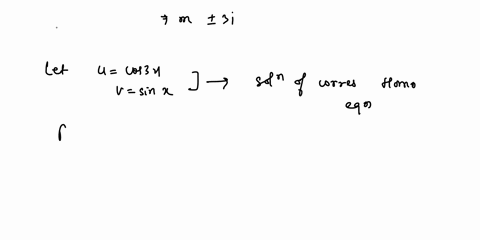 ⇒ m ± 3i
Let u = cos3x
v = sin x ] → solⁿ of corres Homo
eqn